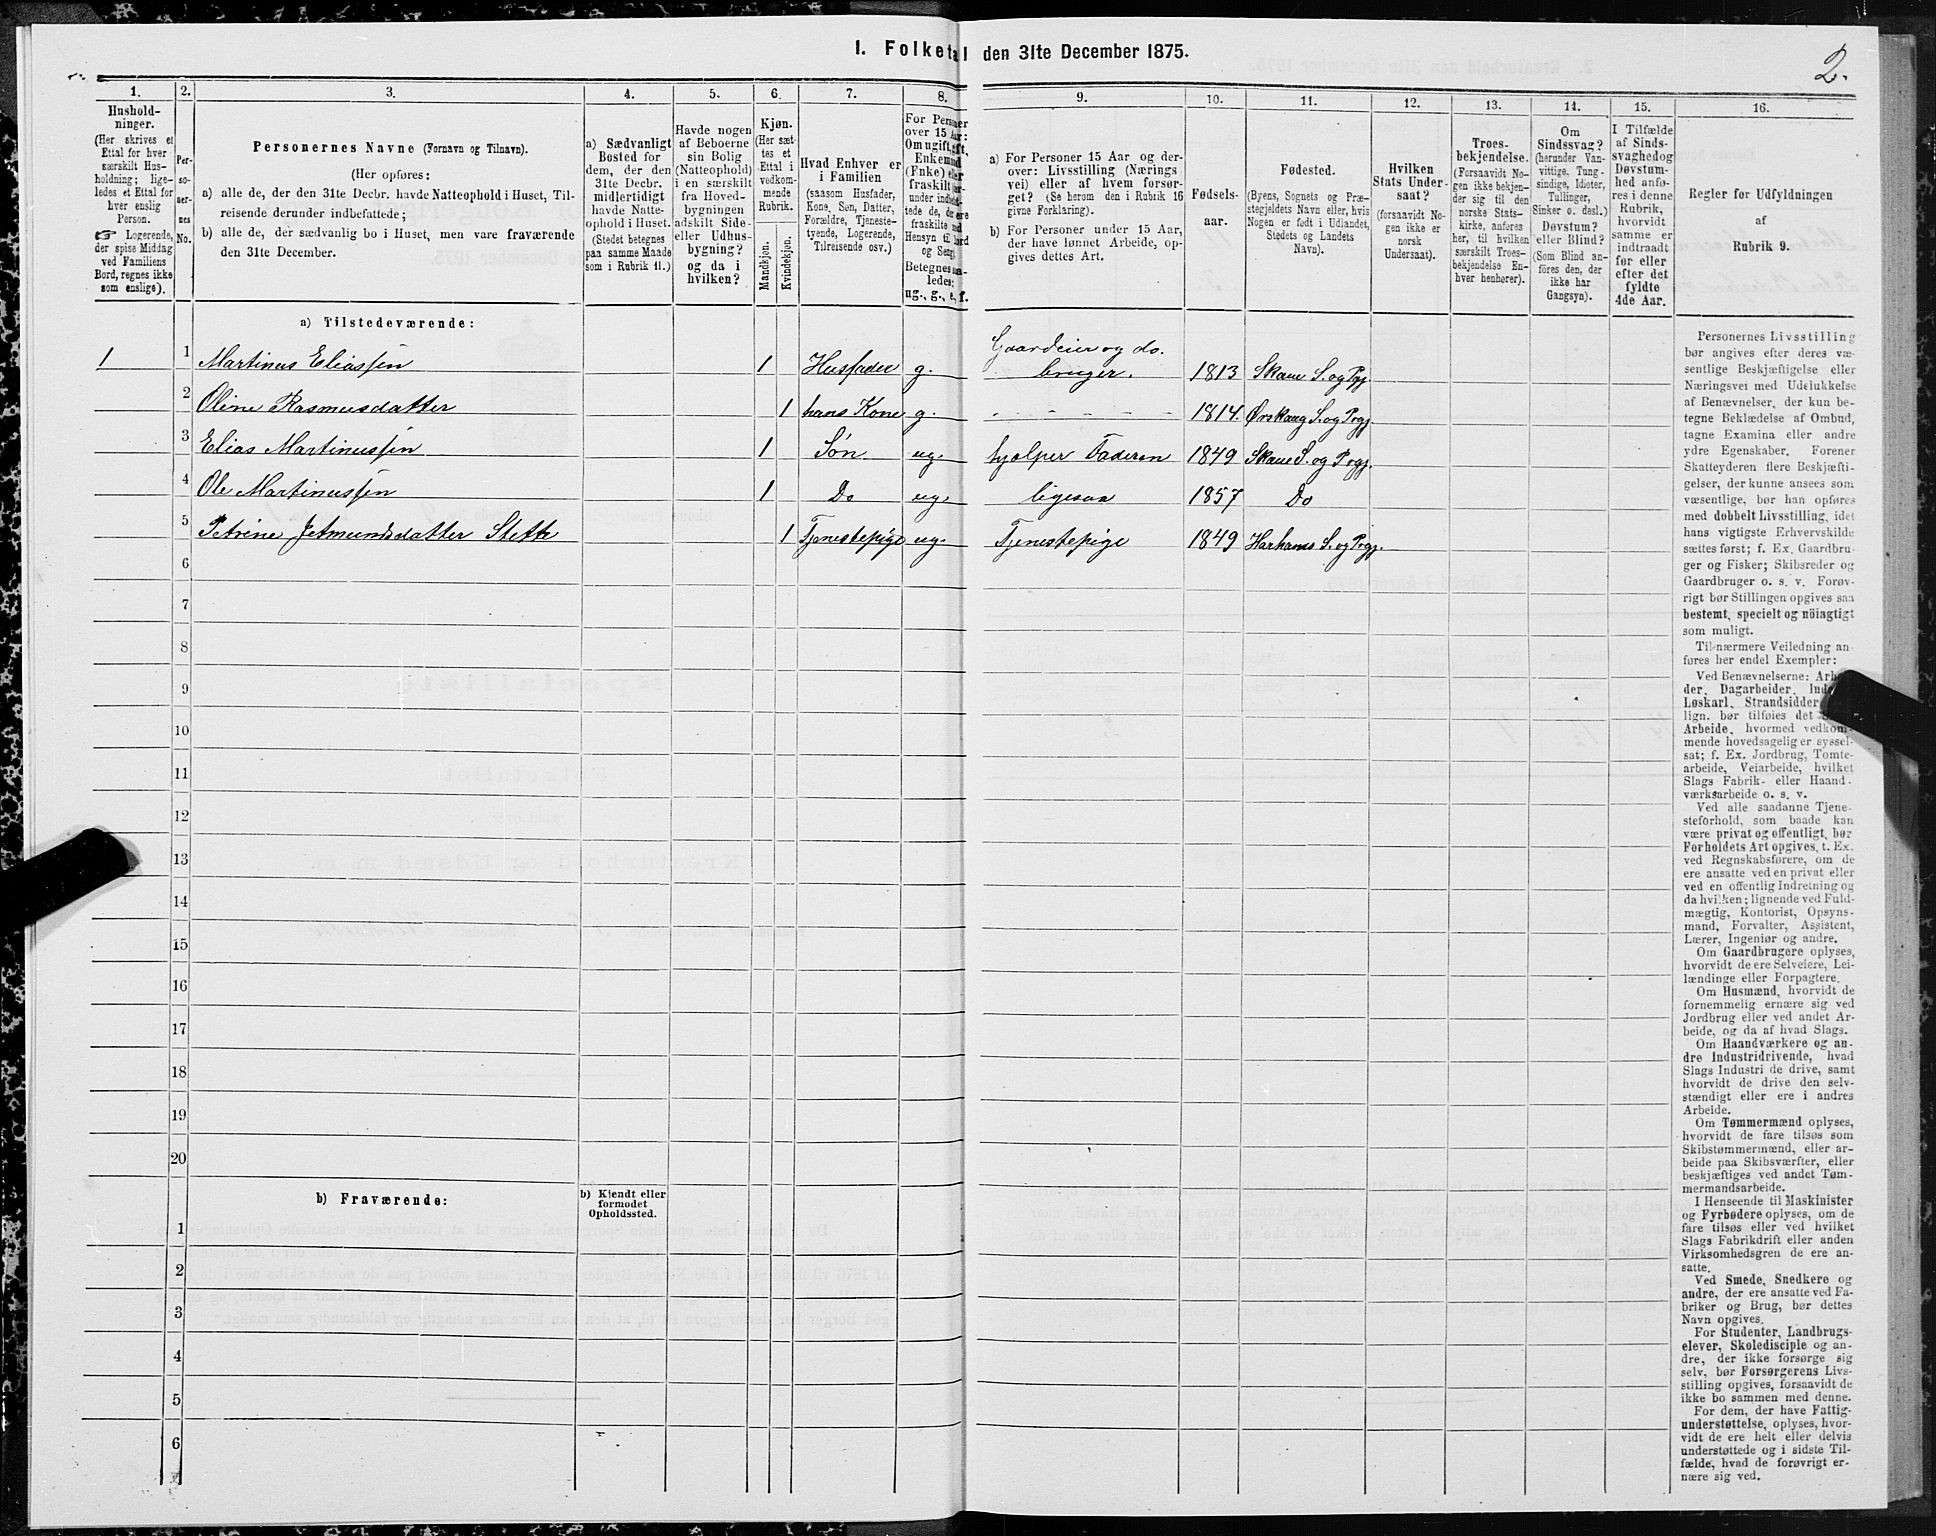 1. Folketal den 31te December 1875.
2.
1. 2. 3. 4. 5. 6. 7. 8. 9. 10. 11. 12. 13. 14. 15. 16.
Hushold-
ninger.
(Her skrives et
Ettal for hver
særskilt Hus-
holdning; lige-
ledes et Ettal for
hver enslig
Person.
☞ Logerende,
der spise Middag
ved Familiens
Bord, regnes ikke
som enslige).
Per-
so-
ner-
nes
No.
Personernes Navne (Fornavn og Tilnavn).
(Her opføres:
a) alle de, der den 31te Decbr. havde Natteophold i Huset, Til-
reisende derunder indbefattede;
b) alle de, der sædvanlig bo i Huset, men vare fraværende
den 31te December.
a) Sædvanligt
Bosted for
dem, der den
31te Decbr.
midlertidigt
havde Natte-
ophold i Huset.
(Stedet betegnes
paa samme Maade
som i Rubrik 11.)
Havde nogen
af Beboerne
sin Bolig
(Natteophold)
i en særskilt
fra Hoved-
bygningen
adskilt Side-
eller Udhus-
bygning?
og da i
hvilken?
Kjøn.
(Her sæt-
tes et
Ettal i
vedkom-
mende
Rubrik.
Mandkjøn.
Kvindekjøn.
Hvad Enhver er
i Familien
(saasom Husfader,
Kone, Søn, Datter,
Forældre, Tjeneste-
tyende, Logerende,
Tilreisende osv.)
For Personer
over 15 Aar:
Om ugift, gift,
Enkemand
(Enke) eller
fraskilt
Betegnes saa-
ledes:
ug., g., e, f.
a) For Personer 15 Aar og der-
over: Livsstilling (Nærings
vei) eller af hvem forsør-
get? (Se herom den i Rubrik 16
givne Forklaring).
b) For Personer under 15 Aar,
der have lønnet Arbeide, op-
gives dettes Art.
Fødsels-
aar.
Fødested.
(Byens, Sognets og Præ-
stegjeldets Navn eller, hvis
Nogen er født i Udlandet,
Stedets og Landets
Navn).
Hvilken
Stats Under-
saat?
(forsaavidt No-
gen ikke er
norsk
Undersaat).
Troes-
bekjendelse.
(Forsaavidt No-
gen ikke bekjen-
der sig til den
norske Stats-
kirke, anføres
her, til hvilken
særskilt Troes-
bekjendelse En-
hver henhører).
Om
Sindssvag?
(herunder Van-
vittige, Tung-
sindige, Idioter,
Tullinger,
Sinker o. desl.)
Døvstum?
eller Blind?
(Som Blind an-
føres den, der
ikke har
Gangsyn).
I Tilfælde
af Sinds-
svaghedog
Døvstum-
hed anfø-
res i denne
Rubrik,
hvorvidt
samme er
indtraadt
før eller
efter det
fyldte
4de Aar.
Regler for Udfyldningen
af
Rubrik 9.
a) Tilstedeværende:
1 1 Martinus Eliassen 1 Husfader g. Gaardeier og do. bruger. 1813 Skaue S. og Pgj.
2 Oline Rasmusdatter 1 hans Kone g. - - - - - 1814. Ørskaug S. og Prgj.
3 Elias Martinussen 1 Søn ug. hjælper Faderen 1849 Skaue S. og Prgj.
4 Ole Martinussen 1 Do ug. ligesaa 1857 Do
5 Petrine Jetmundsdatter Stette 1 Tjenestepige ug. Tjenestepige 1849 Harhams S. og Prgj.
6
7
8
9
10
11
12
13
14
15
16
17
18
19
20
b) Fraværende:
b) Kjendt eller
formodet
Opholdssted.
1
2
3
4
5
6
Personernes Livsstilling
bør angives efter deres væ-
sentlige Beskjæftigelse eller
Næringsvei med Udelukkelse
af Benævnelser, der kun be-
tegne Beklædelse af Ombud,
tagne Examina eller andre
ydre Egenskaber. Forener
Skatteyderen flere Beskjæfti-
gelser, der kunne ansees som
væsentlige, bør han opføres
med dobbelt Livsstilling, idet
hans vigtigste Erhvervskilde
sættes først; f. Ex. Gaardbru-
ger og Fisker; Skibsreder og
Gaardbruger o. s. v. Forøv-
rigt bør Stillingen opgives saa
bestemt, specielt og nöiagtigt
som muligt.
Til nærmere Veiledning an-
føres her endel Exempler:
Ved Benævnelserne: Arbei-
der, Dagarbeider,
Løskarl, Strandsidder
lign. bør tilføies det
Arbeide, hvormed vedkom-
mende hovedsagelig er syssel-
sat; f. Ex. Jordbrug, Tomte-
arbeide, Veiarbeide, hvilket
Slags Fabrik- eller Haand-
værksarbeide o. s. v.
Ved alle saadanne Tjene-
steforhold, som baade kan
være privat og offentligt, bør
Forholdets Art opgives, t. Ex.
ved Regnskabsførere, om de
ere ansatte ved en privat eller
ved en offentlig Indretning og
da hvilken; lignende ved Fuld-
mægtig, Kontorist, Opsyns-
mand, Forvalter, Assistent,
Lærer, Ingeniør og andre.
Om Gaardbrugere oplyses,
hvorvidt de ere Selveiere, Lei-
lændinge eller Forpagtere.
Om Husmænd, hvorvidt de
fornemmelig ernære sig ved
Jordbrug eller ved andet Ar-
beide, og da af hvad Slags.
Om Haandværkere og an-
dre Industridrivende, hvad
Slags Industri de drive, samt
hvorvidt de drive den selv-
stændigt eller ere i andres
Arbeide.
Om Tømmermænd oplyses,
hvorvidt de fare tilsøs som
Skibstømmermænd, eller ar-
beide paa Skibsværfter, eller
beskjæftiges ved andet Tøm-
mermandsarbeide.
I Henseende til Maskinister
og Fyrbødere oplyses, om de
fare tilsøs eller ved hvilket
Slags Fabrikdrift eller anden
Virksomhedsgren de ere an-
satte.
Ved Smede, Snedkere og
andre, der ere ansatte ved Fa-
briker og Brug, bør dettes
Navn opgives.
For Studenter, Landbrugs-
elever, Skoledisciple og an-
dre, der ikke forsørge sig
selv, bør Forsørgerens Livs-
stilling opgives, forsaavidt de
ikke bo sammen med denne.
For dem, der have Fattig-
understøttelse, oplyses, hvor-
vidt de ere helt eller delvis
understøttede og i sidste Til-
fælde, hvad de forøvrigt er-
nære sig ved.